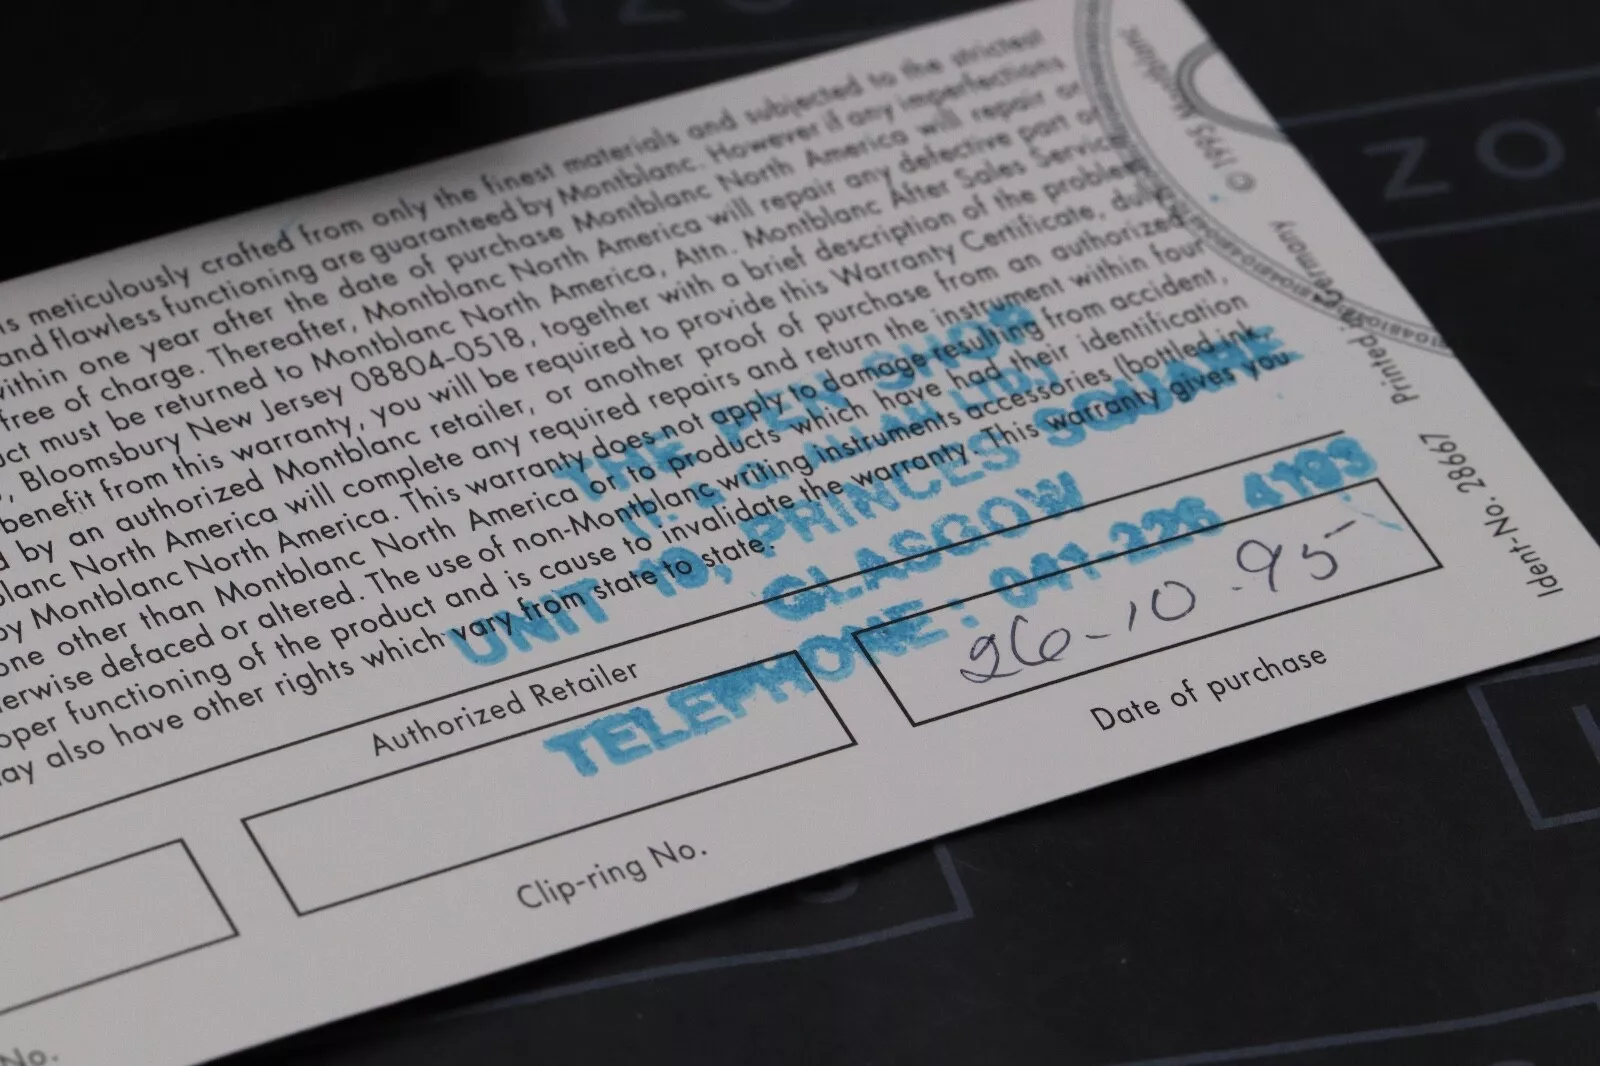 is meticulously crafted from only the finest materials and subjected to the strictest
and flawless functioning are guaranteed by Montblanc. However if any imperfections
within one year after the date of purchase Montblanc North America will repair or
free of charge. Thereafter, Montblanc North America will repair any defective part or
must be returned to Montblanc North America, Attn. Montblanc After Sales Service
, Bloomsbury New Jersey 08804-0518, together with a brief description of the problem
benefit from this warranty, you will be required to provide this Warranty Certificate, duly
by an authorized Montblanc retailer, or another proof of purchase from an authorized
North America will complete any required repairs and return the instrument within four
by Montblanc North America. This warranty does not apply to damage resulting from accident,
other than Montblanc North America or to products which have had their identification
defaced or altered. The use of non-Montblanc writing instruments accessories (bottled ink,
functioning of the product and is cause to invalidate the warranty. This warranty gives you
also have other rights which vary from state to state.
THE PEN SHOP
UNIT 10, PRINCES SQUARE
GLASGOW
TELEPHONE: 041-226 4193
Authorized Retailer
26-10-95
Date of purchase
Clip-ring No.
No.
Ident-No. 286667 Printed in Germany © 1995 Montblanc
ZO